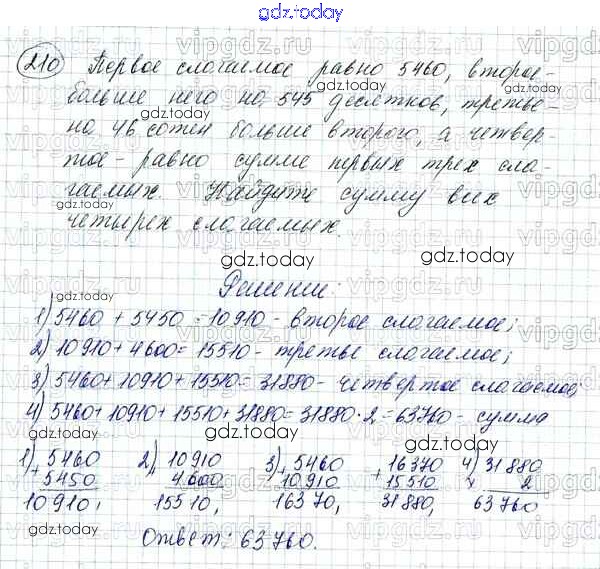 gdz.today
210 Первое слагаемое равно 5460, второе-
больше него на 545 десятков, третье-
на 46 сотен больше второго, а четвер-
тое - равно сумме первых трех сла-
гаемых. Найдите сумму всех
четырех слагаемых.
Решение:
1) 5460 + 5450 = 10910 - второе слагаемое;
2) 10910 + 4600 = 15510 - третье слагаемое;
3) 5460 + 10910 + 15510 = 31880 - четвертое слагаемое;
4) 5460 + 10910 + 15510 + 31880 = 31880 · 2 = 63760 - сумма
1) 5460 2) 10910 3) 5460 16370 4) 31880
+ 5450 + 4600 + 10910 + 15510 × 2
10910, 15510, 16370, 31880, 63760
Ответ: 63760.